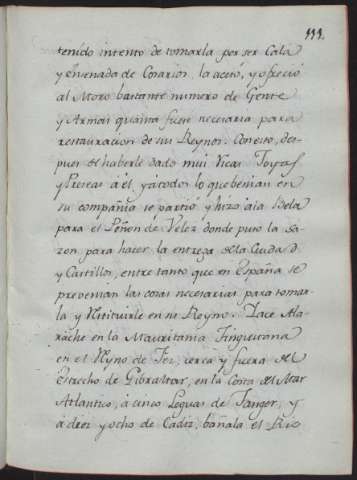 111.
tenido intento de tomarla por ser Cala
y Ensenada de Cosarios, la acetó, y ofreció
al Moro bastante numero de Gente
y Armas quanta fuese necesaria para
restauracion de sus Reynos. Con esto, des-
pues de haberle dado mui ricas Joyas
y Preseas á él, y á todos lo que benian en
su compañia se partió y hizo á la Bela
para el Peñon de Velez donde puso la sa-
zon para hacer la entrega de la Ciudad
y Castillos, entre tanto que en España se
prevenian las cosas necesarias para tomar-
la y Restituirle en su Reyno. Yace Ala-
rache en la Mauritania Tingitana
en el Reyno de Fez, cerca y fuera del
Estrecho de Gibraltar, en la Costa del Mar
Atlantico, á cinco Leguas de Tanger, y
á diez y ocho de Cadiz, bañala el Rio